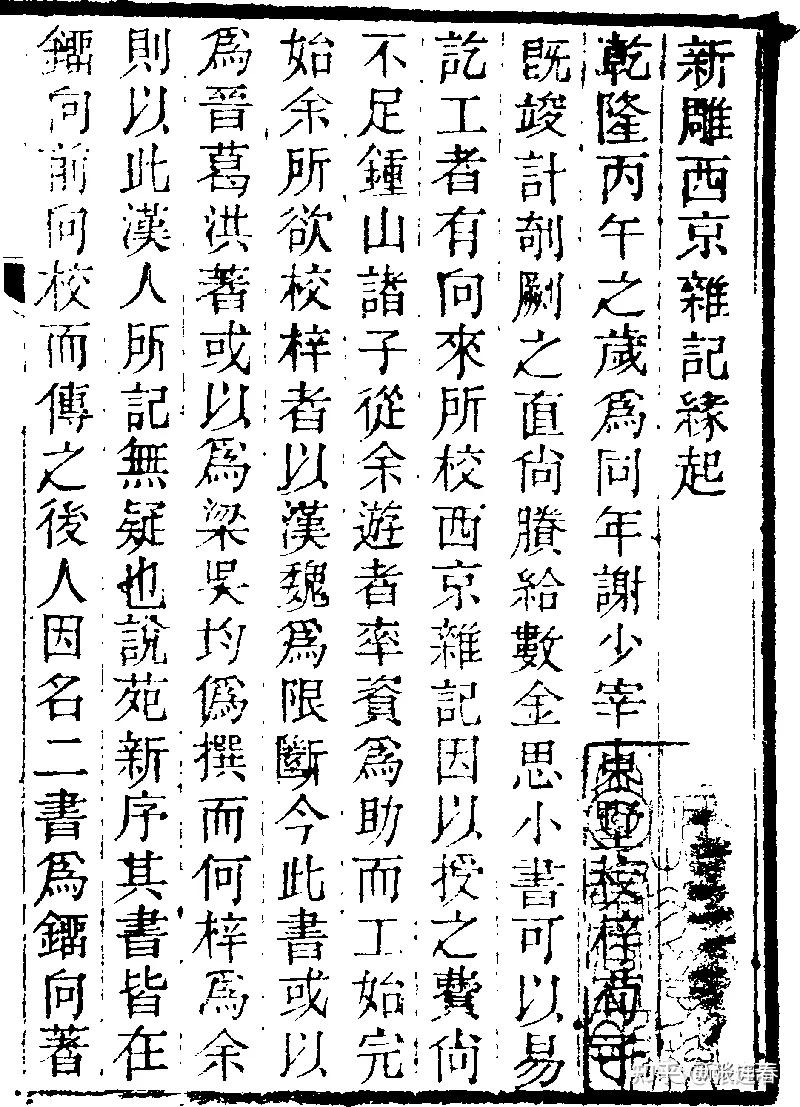 新雕西京雜記緣起
乾隆丙午之歲爲同年謝少宰東墅校梓荀子
旣竣計剞劂之直尙賸給數金思小書可以易
訖工者有向來所校西京雜記因以授之費尙
不足鍾山諸子從余遊者率資爲助而工始完
始余所欲校梓者以漢魏爲限斷今此書或以
爲晉葛洪著或以爲梁吳均僞撰而何梓爲余
則以此漢人所記無疑也說苑新序其書皆在
鐂向前向校而傳之後人因名二書爲鐂向著
知乎 @张廷春